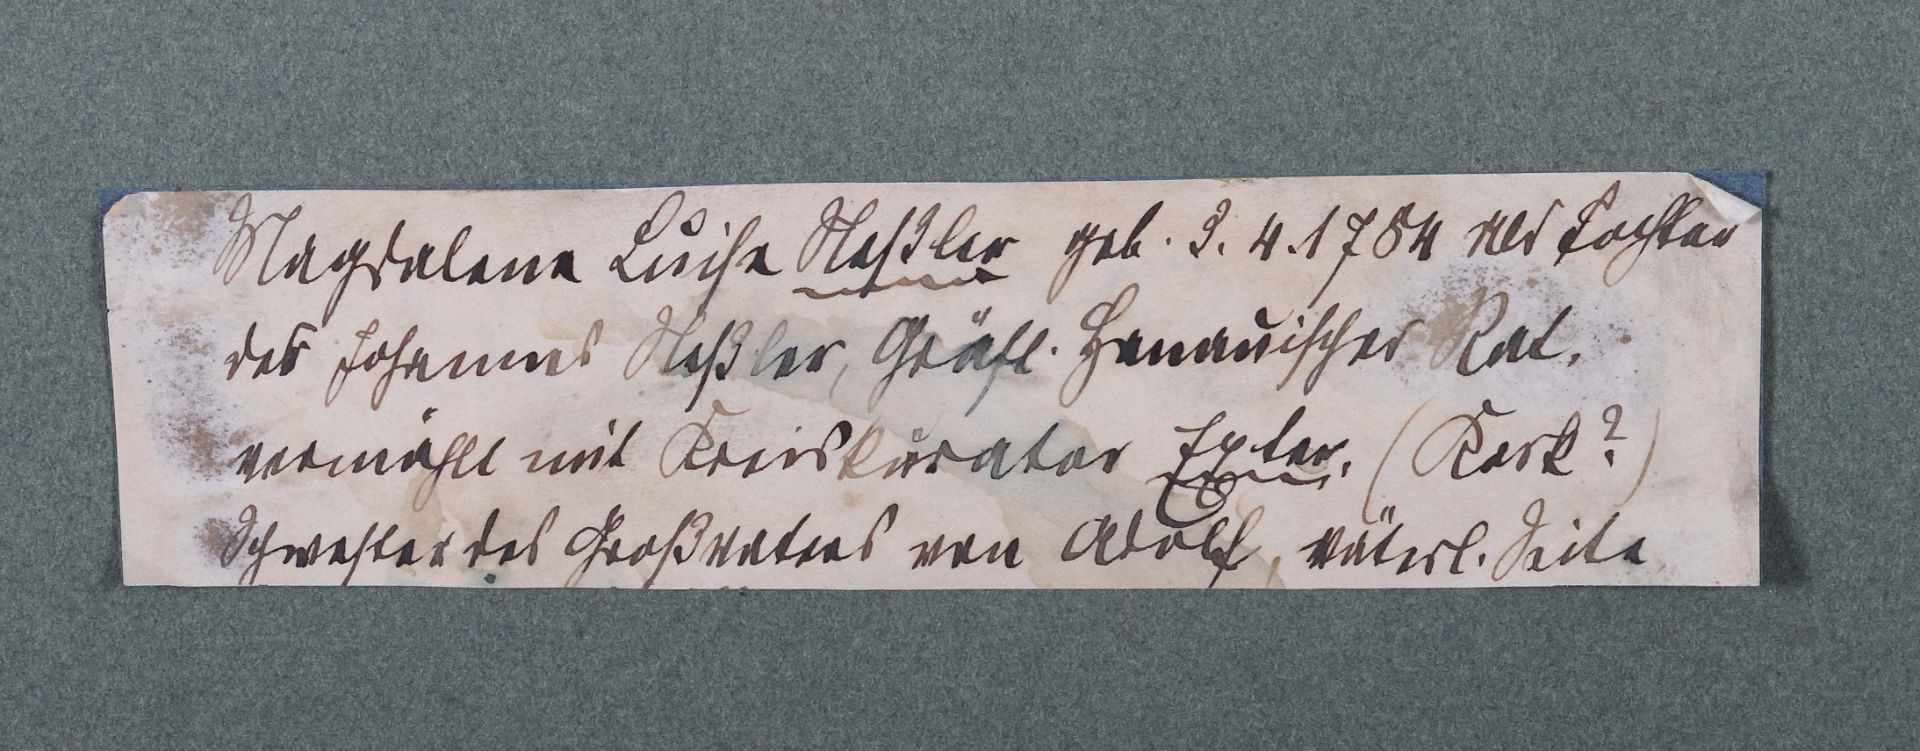 Magdalene Luise Neßler geb. 3.4.1784 als Tochter
des Johannes Neßler, Gräfl. Hanauischer Rat,
vermählt mit Kreiskurator Exter. (Kork?)
Schwester des Großvaters von Adolf, väterl. Seite